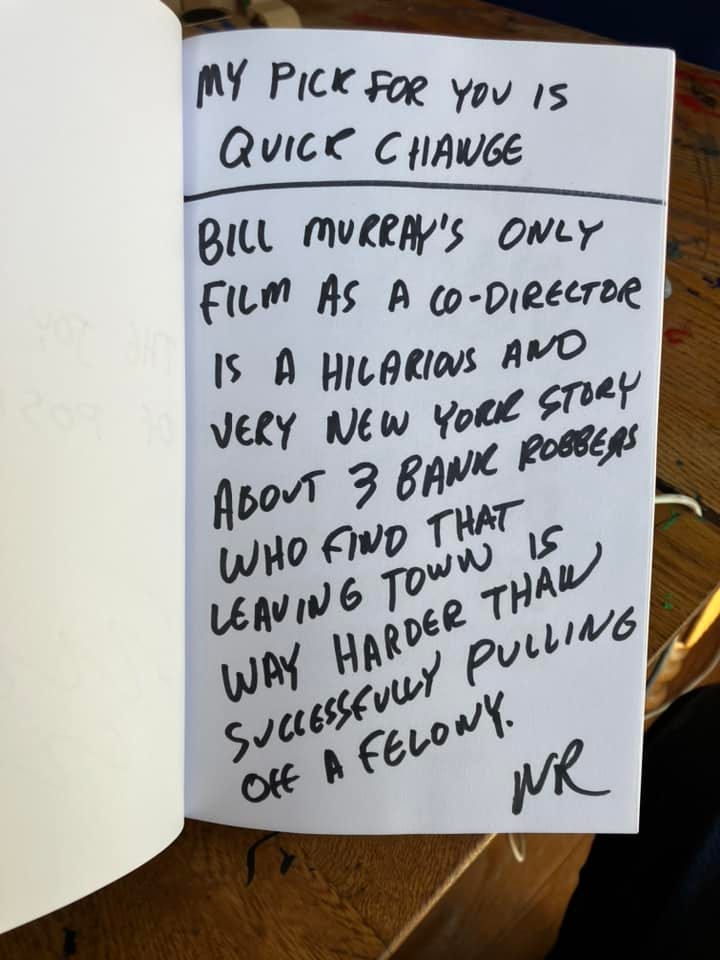 MY PICK FOR YOU IS
QUICK CHANGE
BILL MURRAY'S ONLY
FILM AS A CO-DIRECTOR
IS A HILARIOUS AND
VERY NEW YORK STORY
ABOUT 3 BANK ROBBERS
WHO FIND THAT
LEAVING TOWN IS
WAY HARDER THAN
SUCCESSFULLY PULLING
OFF A FELONY.
NR